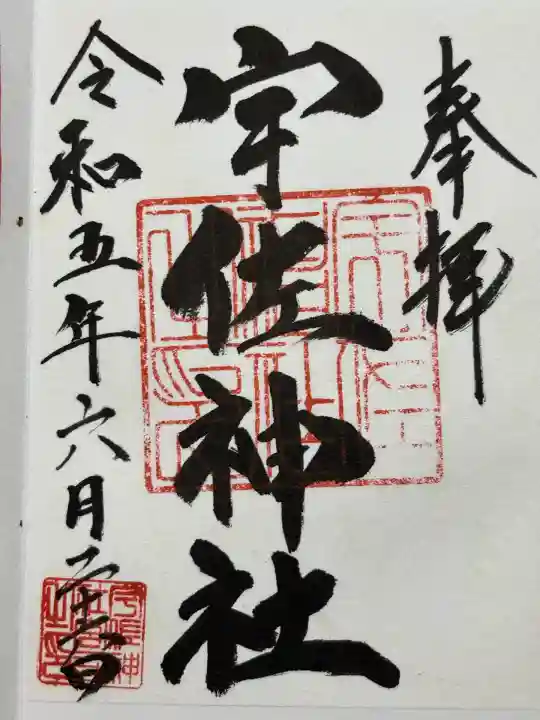 奉拝
宇佐神社
令和五年六月二十六日